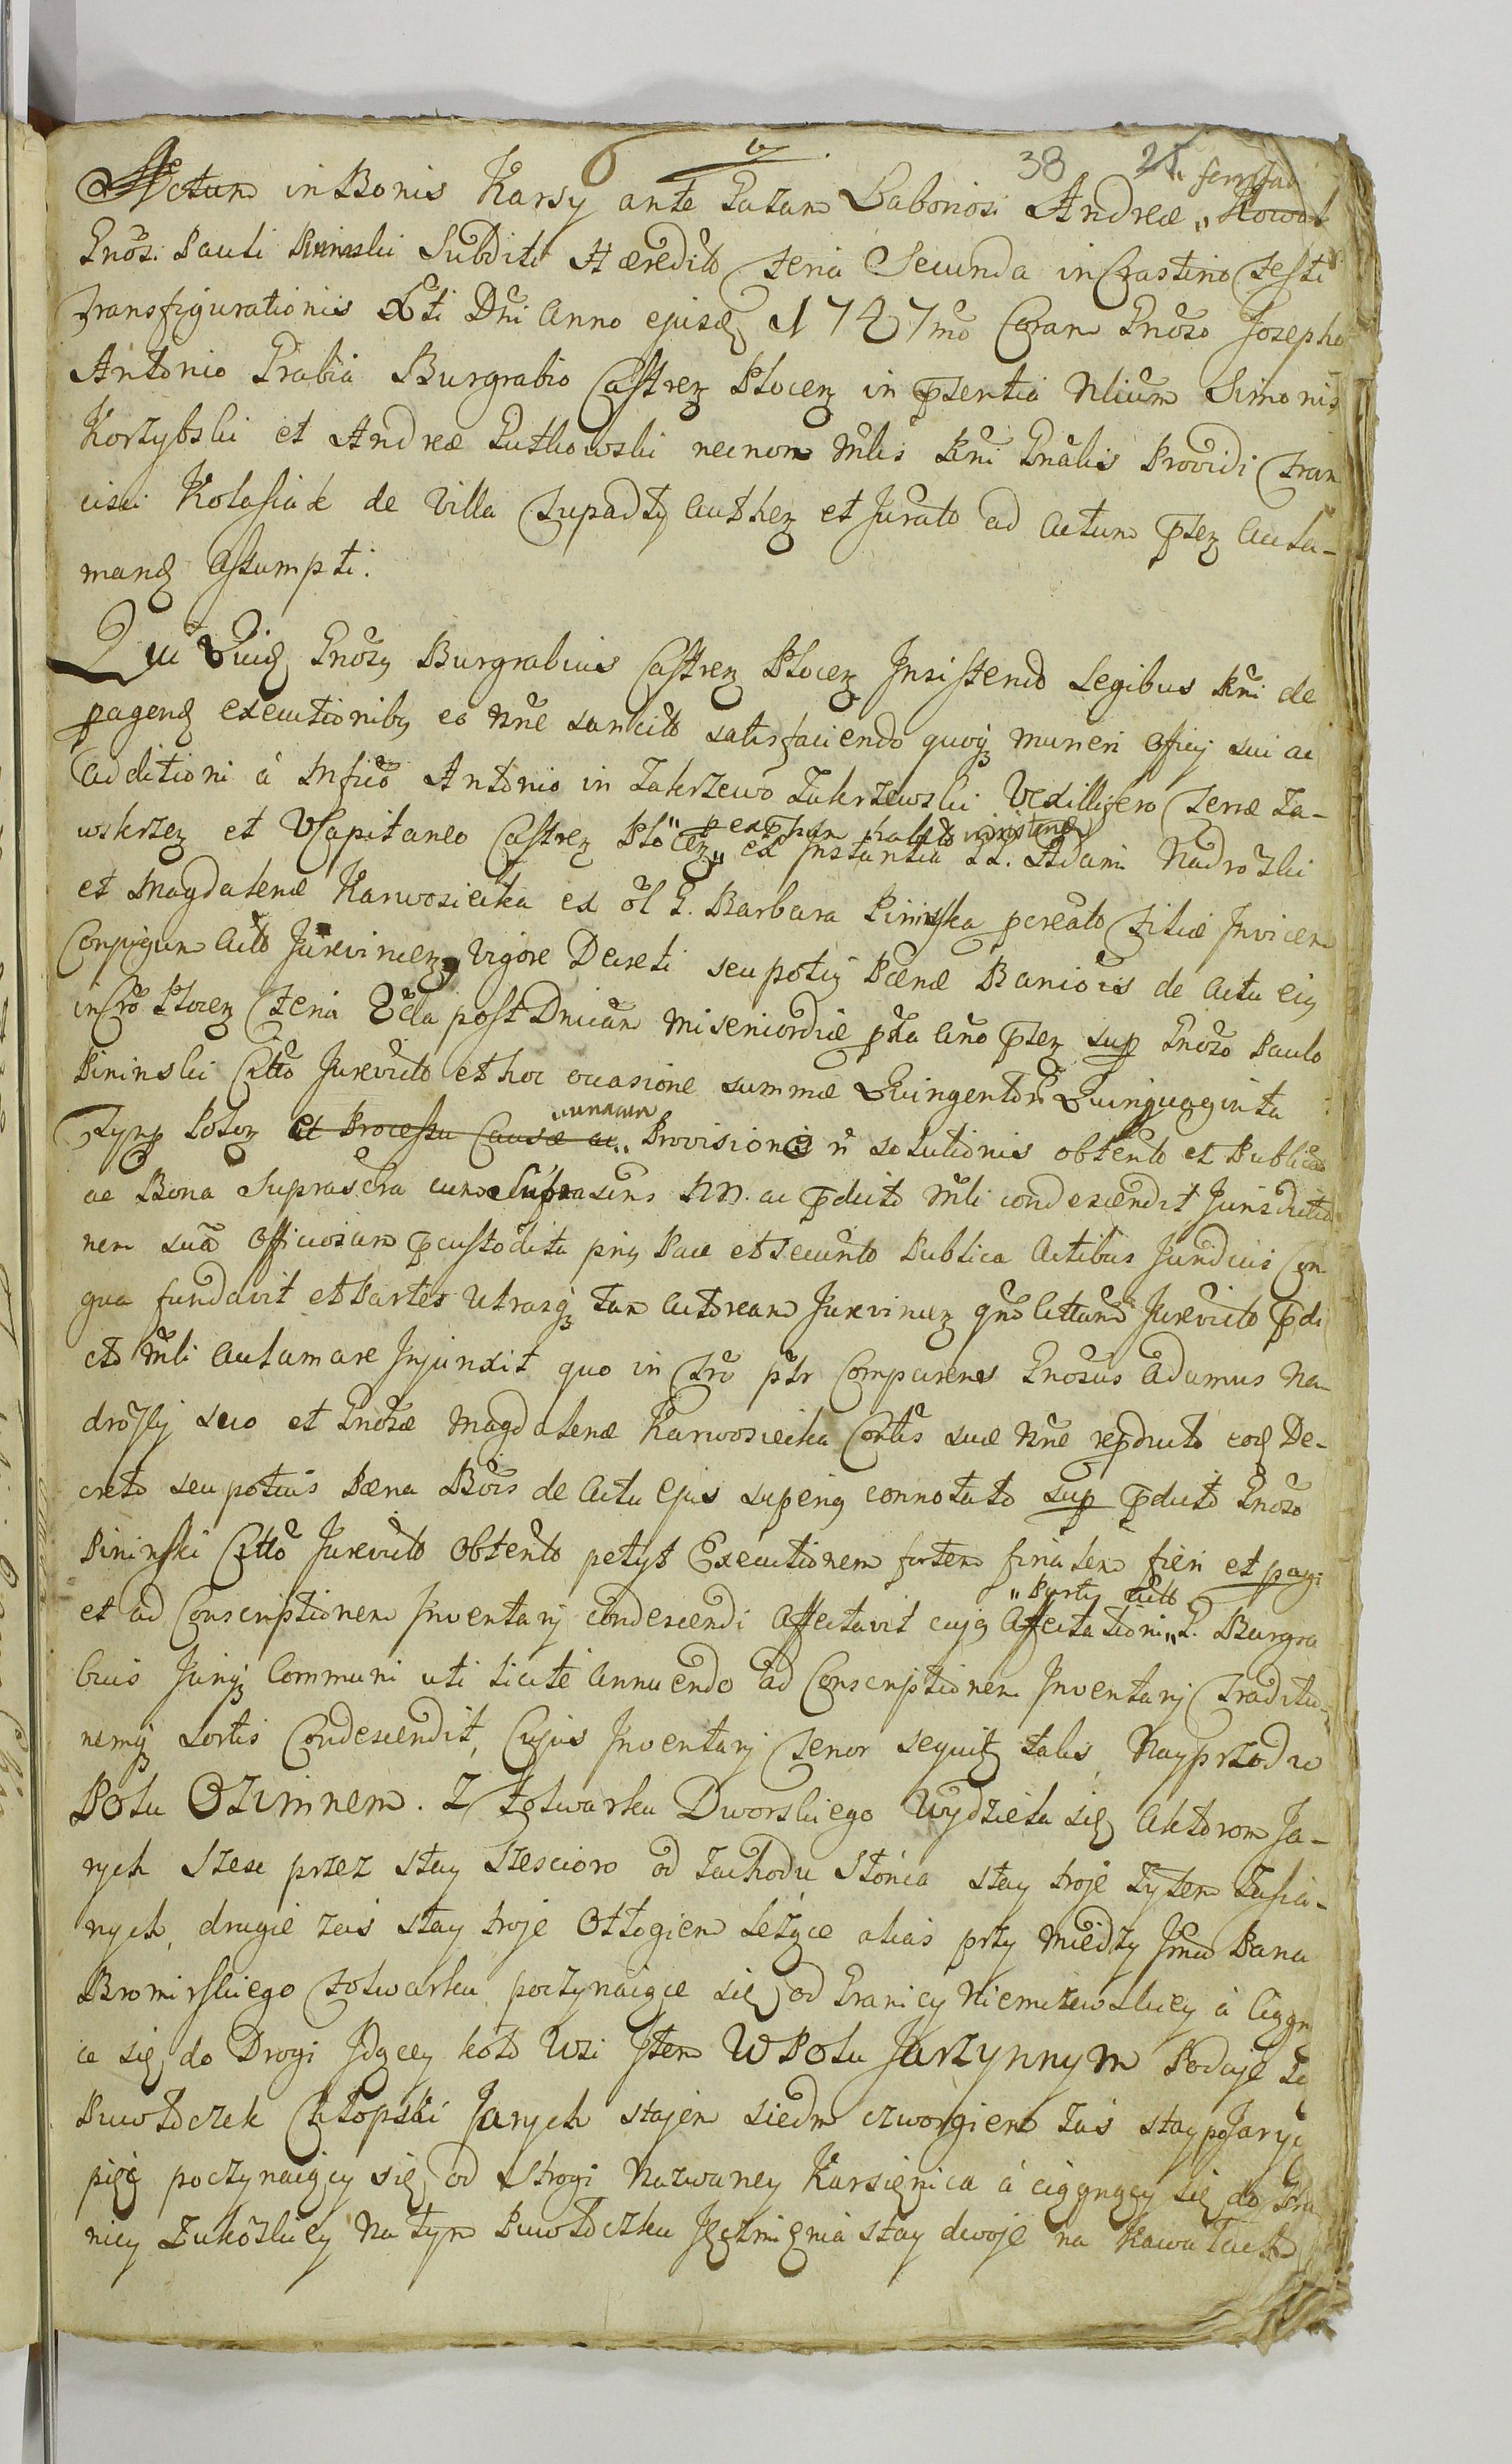 6
38 21
Actum in Bonis Karsy ante Lazam Laboriosi Andreæ
Gnōsi Pauli Pininski Subditi Hæredito Feria Secunda in Crastino Festi
Transfigurationis Xti Dni Anno ejusd 1747mo Coram Gnoso Josepho
Antonio Grabia Burgrabio Castren Plocen in pñtentia Nlium Simonis
Korzybski et Andreæ Gutkowski necnon Mlis Rni Gnalis Providi Fran
cisci Kolasiak de Villa Lupadly authen et Jurato ad actum pñtem acta-
mand assumpti.
Qui Gnosus Burgrabius Castren Plocen Insistendo Legibus Rni de
pagend executionibus eo nñe sancito satisfaciendo quoq muneri officij sui ac
additioni á Mfico Antonio in Zakrzewo Zakrzewski Vexillifero Terræ Za-
wskrzen et VCapitaneo Castren Plocen ex Instantia GG. Adami Nadrozki
et Magdalenæ Karwosiecka ex ol G. Barbara Pininska pcreato Filiæ Invicem
Conjugum acto Jurevincen, Vigore Decreti seu potius Pænæ Banniois de actu ejus
in Cro Plocen Feria 2da post Dnicam Misericordiæ pta Año pñtem sup Gnoso Paulo
Pininski Citto Jurevicto et hoc occasione summæ Quingentor Quinquaginta
Flynp Polon et Processu Causæ ac unacum Provisionis ñ solutionis obtento et Publicato
ac Bona Suprascra cum Suprascris NN. ac pdicto Mli condescendit Jurisdictio
nem suã officiosam pcustodita prius Pace et Securito Publica actibus Juridicis Con
gua fundavit et Partes Utrasq tam actoream Jurevincen qño Cittam Jurevicto pdi
cto Mli aclamare Injunxit quo in Tro ptr Comparens Gnosus Adamus Na-
drozky suo et Gnosæ Magdalenæ Karwosiecka Cortis suæ nñe repducto eod De-
creto seu potius Pæna Bõis de actu ejus superius connotato sup pdicto Gnoso
Pininski Citto Jurevicto Obtento petyt Executionem fortem finalem fieri et pagi
et ad Conscriptionem Inventarij condescendi affectavit cujus affectationi G. Burgra
bius Juriq Communi uti licite annuendo ad Conscriptionem Inventarij Traditio-
nemq Sortis Condescendit, Cujus Inventarij Tenor sequitr talis, Nayprzod w
Polu Ozimnem. Z Folwarku Dworskiego Wydziela się Aktorom Ja-
rych Szesc przez stay Szescioro od Zachodu Słońca stay troje Zytem Zasia-
nych, drugie zas stay troje Odłogiem Leżące alias przy Miedzy Jmci Pana
Bromirskiego Folwarku poczynaiące się od Granicy Niemiewskiey á Ciągn
ce się do Drogi Idącey koło Wsi Item W Polu Jarzynnym Podaje Się
Puwłoczek Chłopski Jarych stajem siedm czworgiem zas stay po Jarych
pięć poczynaiący się od Strogi Nazwaney Karsięnica á ciągnący się do Gra
nicy Zukozkiey Na tym Puwłoczku Jęczmięnia stay dwoje na Kawałach